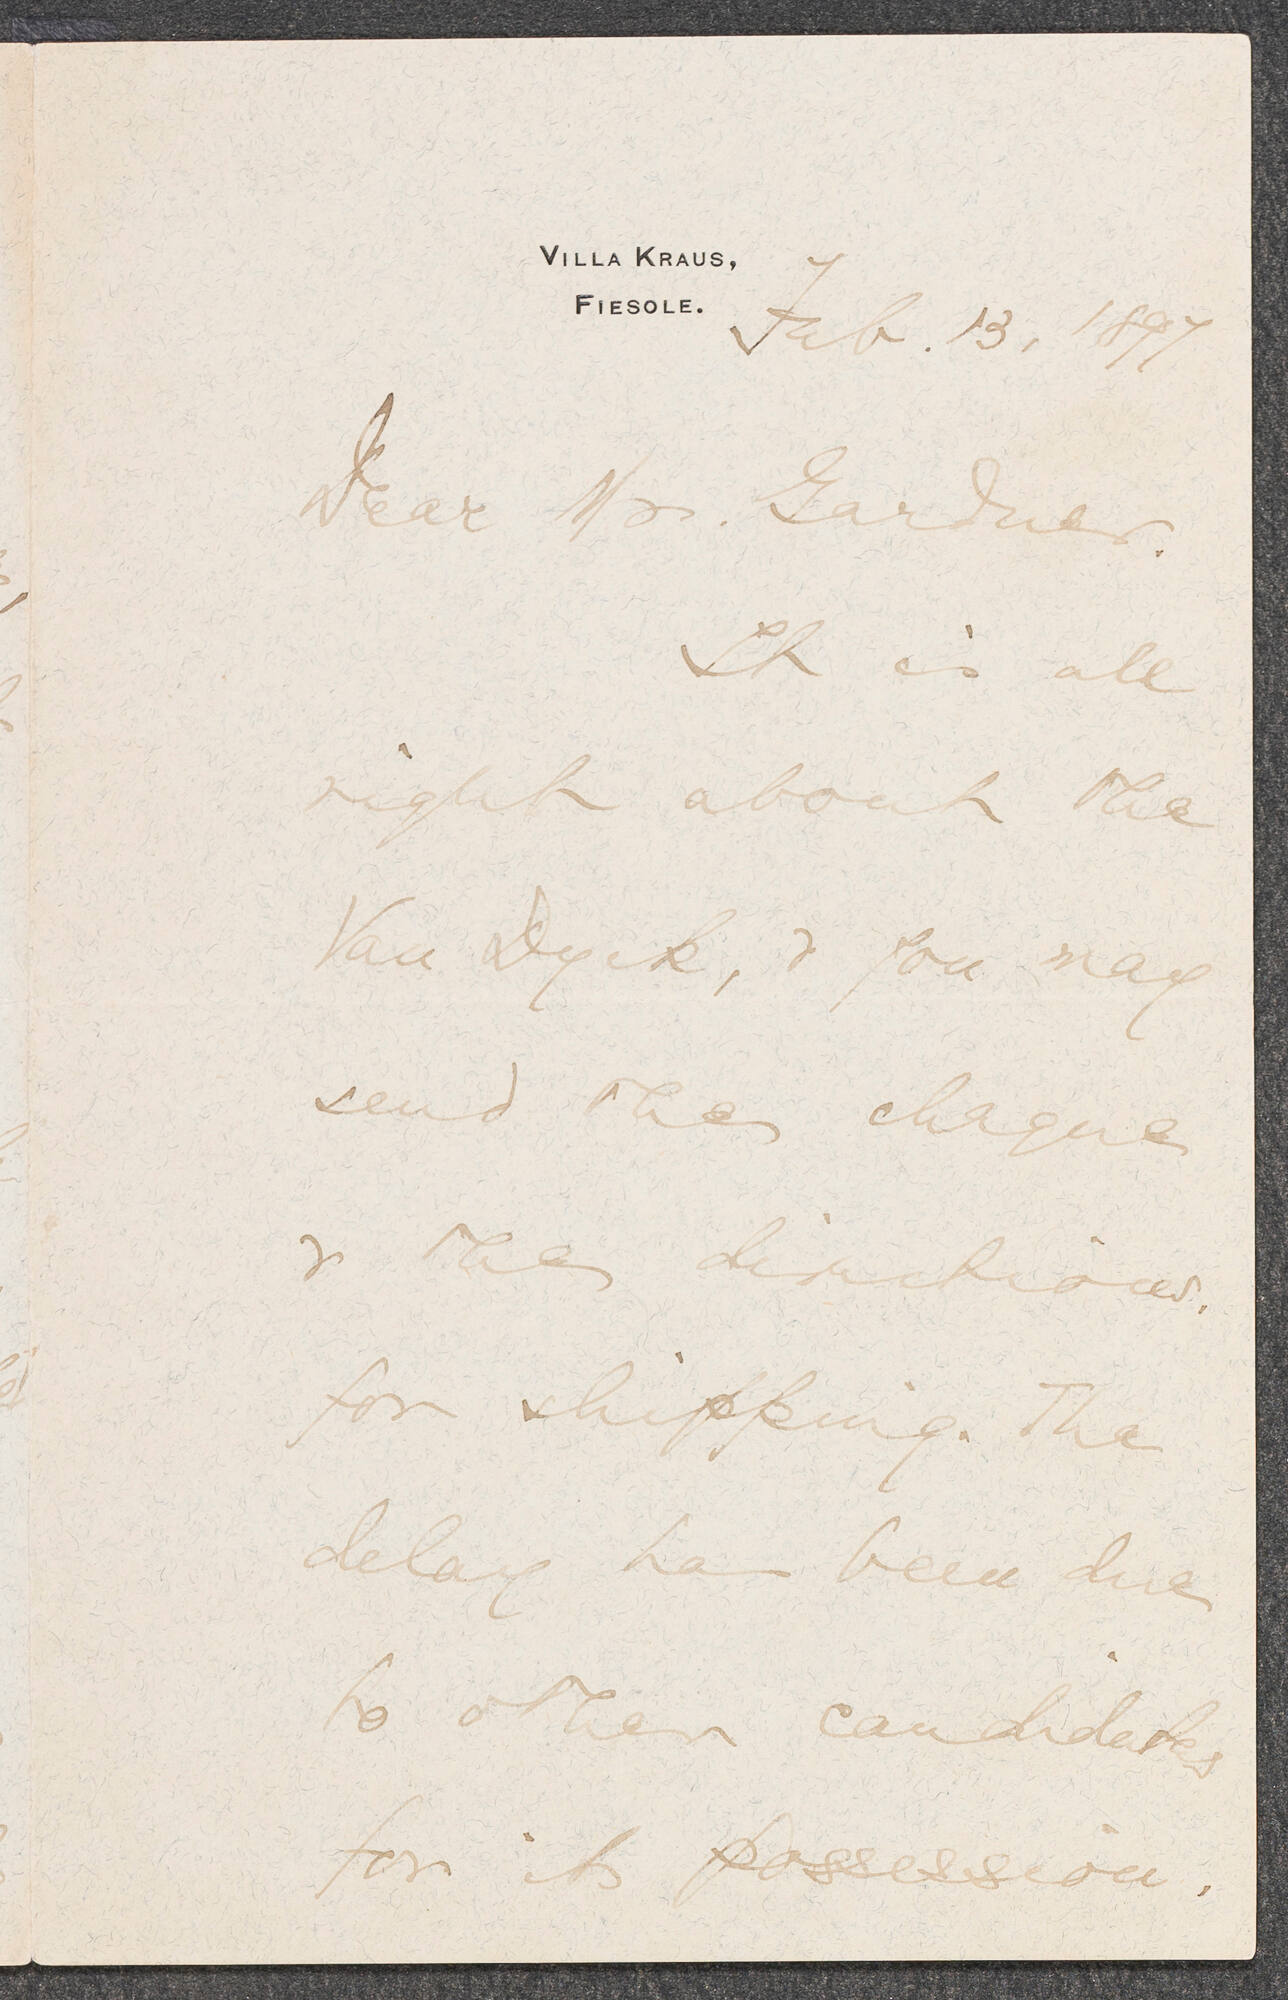 VILLA KRAUS,
FIESOLE.
Feb. 13, 1897
Dear Mr. Gardner.
It is all
right about the
Van Dyck, & you may
send the cheque
& the directions.
for shipping. The
delay has been due
to other candidates
for its possession.